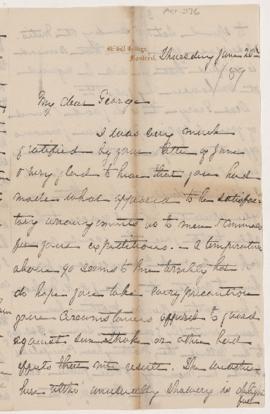 McGill College,
Montreal.
Thursday June 20th
/89
My dear George
I was very much
gratified by your letter of June
& very glad to hear that you had
made what appeared to be satisfac-
tory arrangements as to men &
for your expeditions. — A temperature
above 90 seems to me terribly hot
do hope you take every precaution
your circumstances to guard
against sun stroke or other bad
effects that may result. The weather
here unusually showery is